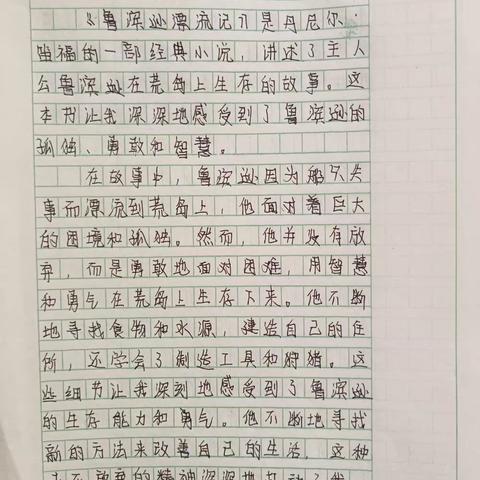 《鲁滨逊漂流记》是丹尼尔·
笛福的一部经典小说，讲述了主人
公鲁滨逊在荒岛上生存的故事。这
本书让我深深地感受到了鲁滨逊的
孤独、勇敢和智慧。
在故事中，鲁滨逊因为船只失
事而漂流到荒岛上，他面对着巨大
的困境和孤独。然而，他并没有放
弃，而是勇敢地面对困难，用智慧
和勇气在荒岛上生存下来。他不断
地寻找食物和水源，建造自己的住
所，还学会了制造工具和狩猎。这
些细节让我深刻地感受到了鲁滨逊
的生存能力和勇气。他不断地寻找
新的方法来改善自己的生活，这种
永不放弃的精神深深地打动了我